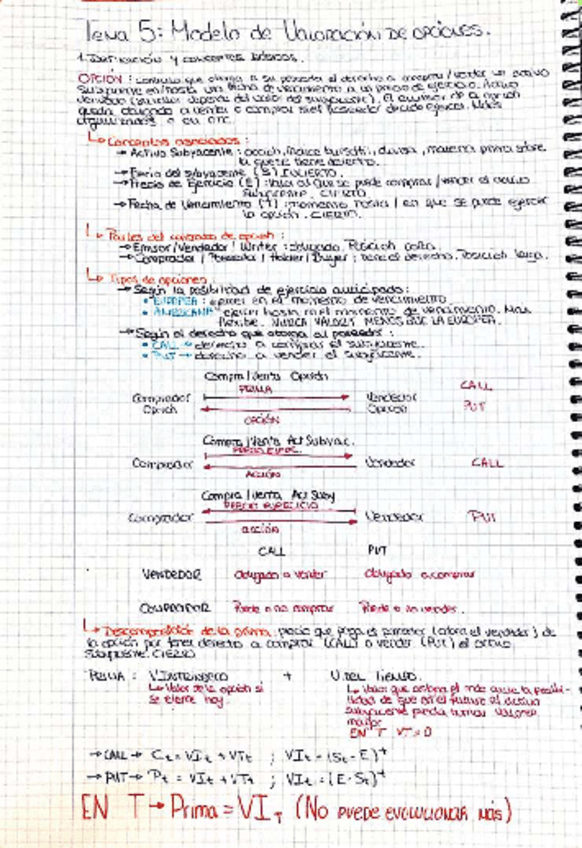 Tema 5: Modelo de Valoración de opciones.
1. Definición y conceptos básicos.
OPCIÓN: contrato que otorga a su poseedor el derecho a comprar/vender un activo
subyacente en/hasta una fecha de vencimiento a un precio de ejercicio. Activo
derivado (su valor depende del valor del subyacente). El emisor de la opción
queda obligado a vender o comprar si el poseedor decide ejercer.
organizados o en OTC.
Conceptos asociados:
→ Activo Subyacente: acción, índice bursátil, divisa, materia prima sobre
la que se tiene derecho.
→ Precio del subyacente (S) INCIERTO.
→ Precio de Ejercicio (E): valor al que se puede comprar/vender el activo
subyacente. CIERTO.
→ Fecha de Vencimiento (T): momento hasta/en que se puede ejercer
la opción. CIERTO.
Partes del contrato de opción:
→ Emisor/Vendedor/Writer: obligado. Posición corta.
→ Comprador/Poseedor/Holder/Buyer: tiene el derecho. Posición larga.
Tipos de opciones:
→ Según la posibilidad de ejercicio anticipado:
• EUROPEA: ejercer en el momento de vencimiento
• AMERICANA: ejercer hasta en el momento de vencimiento. Más
flexible. NUNCA VALDRÁ MENOS QUE LA EUROPEA.
→ Según el derecho que otorga al poseedor:
• CALL → derecho a comprar el subyacente.
• PUT → derecho a vender el subyacente.
Compra/Venta Opción
PRIMA
CALL
Comprador Vendedor
Opción Opción PUT
OPCIÓN
Compra/Venta Act Subyac.
PRECIO EJERC.
Comprador Vendedor CALL
ACCIÓN
Compra/Venta Act Suby
PRECIO EJERCICIO
Comprador Vendedor PUT
acción
CALL PUT
VENDEDOR Obligado a vender Obligado a comprar
COMPRADOR Puede o no comprar Puede o no vender.
Descomposición de la prima: precio que paga el poseedor (cobra el vendedor) de
la opción por tener derecho a comprar (CALL) o vender (PUT) el activo
subyacente. CIERTO
PRIMA = V.INTRÍNSECO + V.DEL TIEMPO.
Valor de la opción si
se ejerce hoy.
Valor que otorga el mdo ante la posibi-
lidad de que en el futuro el activo
subyacente pueda tomar valores
mayor
EN T VT=0
→ CALL → Ct = VIt + VTt ; VIt = (St - E)+
→ PUT → Pt = VIt + VTt ; VIt = (E - St)+
EN T → Prima = VI_T (No puede evolucionar más)